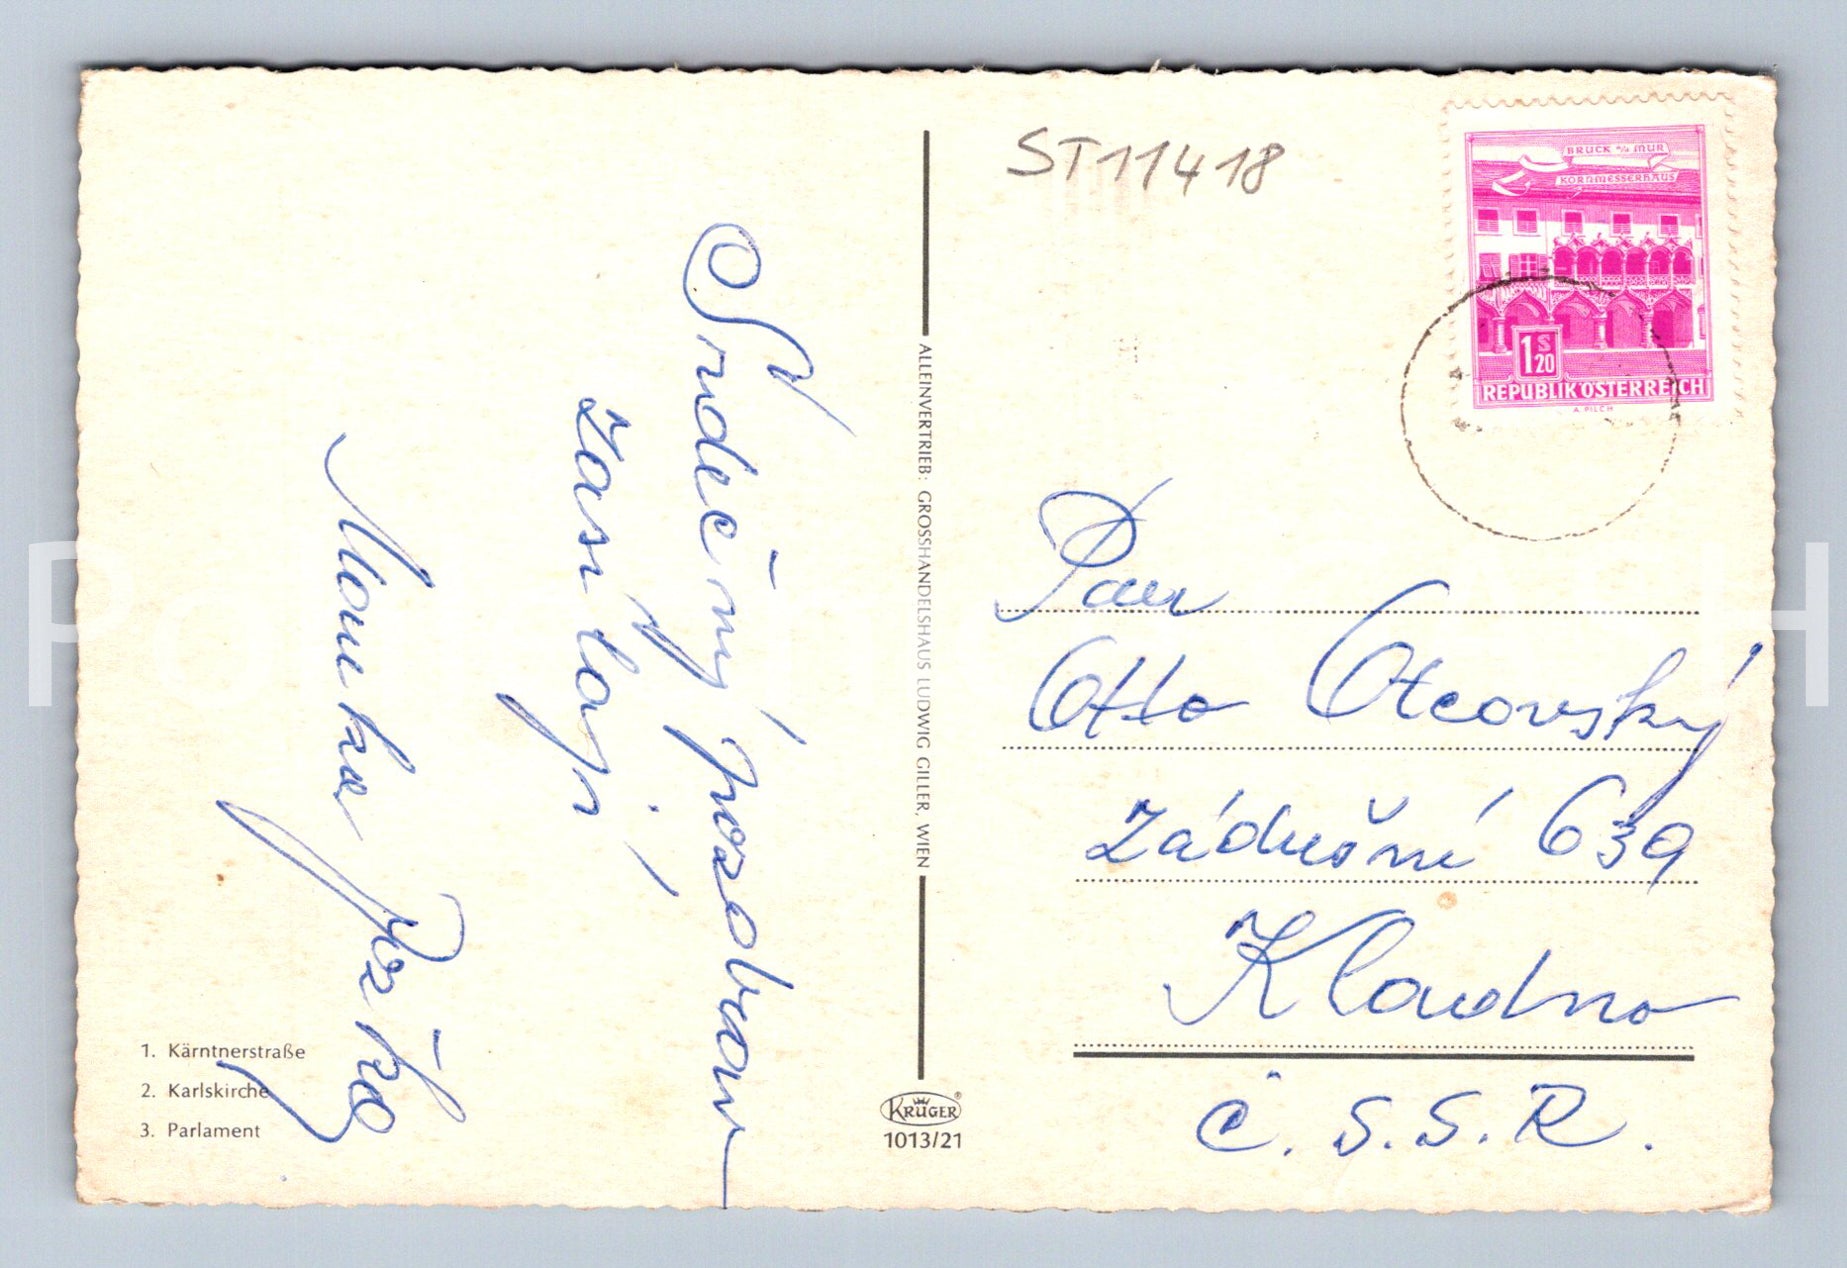 ST11418
BRUCK a/d MUR
KORNMESSERHAUS
1 S 20
REPUBLIK ÖSTERREICH
A. PILCH
Srdečný pozdrav
zasílají
Mařka
Pan
Otto Otcovský
Zádušní 639
Kladno
Č.S.S.R.
ALLEINVERTRIEB: GROSSHANDELSHAUS LUDWIG GILLER, WIEN
1. Kärntnerstraße
2. Karlskirche
3. Parlament
KRÜGER
1013/21